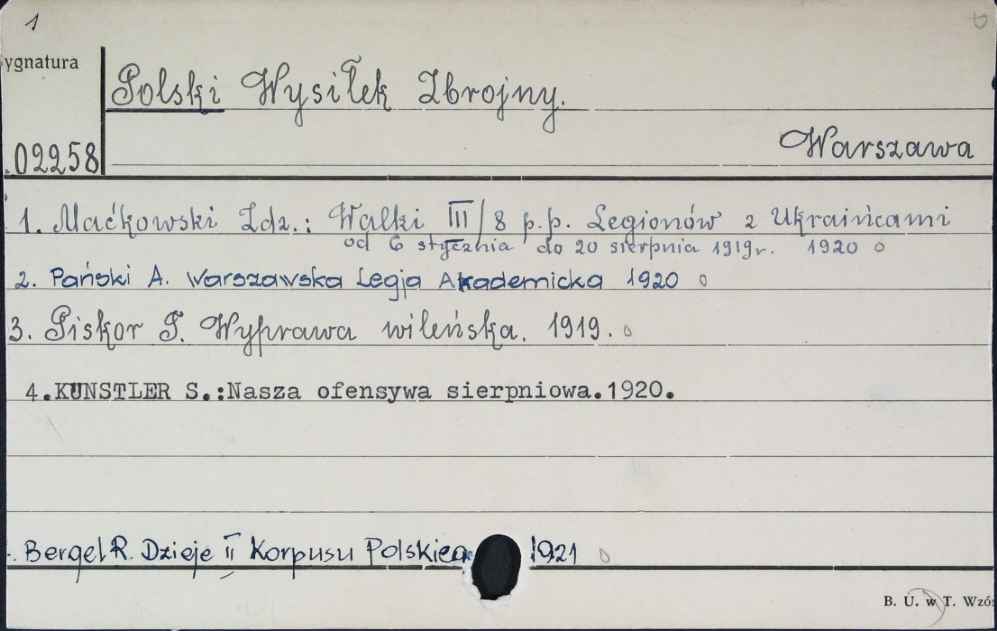 1
ygnatura
Polski Wysiłek Zbrojny.
02258
Warszawa
1. Maćkowski Zdz.: Walki III/8 p.p. Legionów z Ukraińcami
od 6 stycznia do 20 sierpnia 1919 r. 1920
2. Pański A. Warszawska Legja Akademicka 1920
3. Piskor T. Wyprawa wileńska. 1919.
4.KUNSTLER S.:Nasza ofensywa sierpniowa.1920.
Bergel R. Dzieje II Korpusu Polskieg 1921
B. U. w T. Wzó